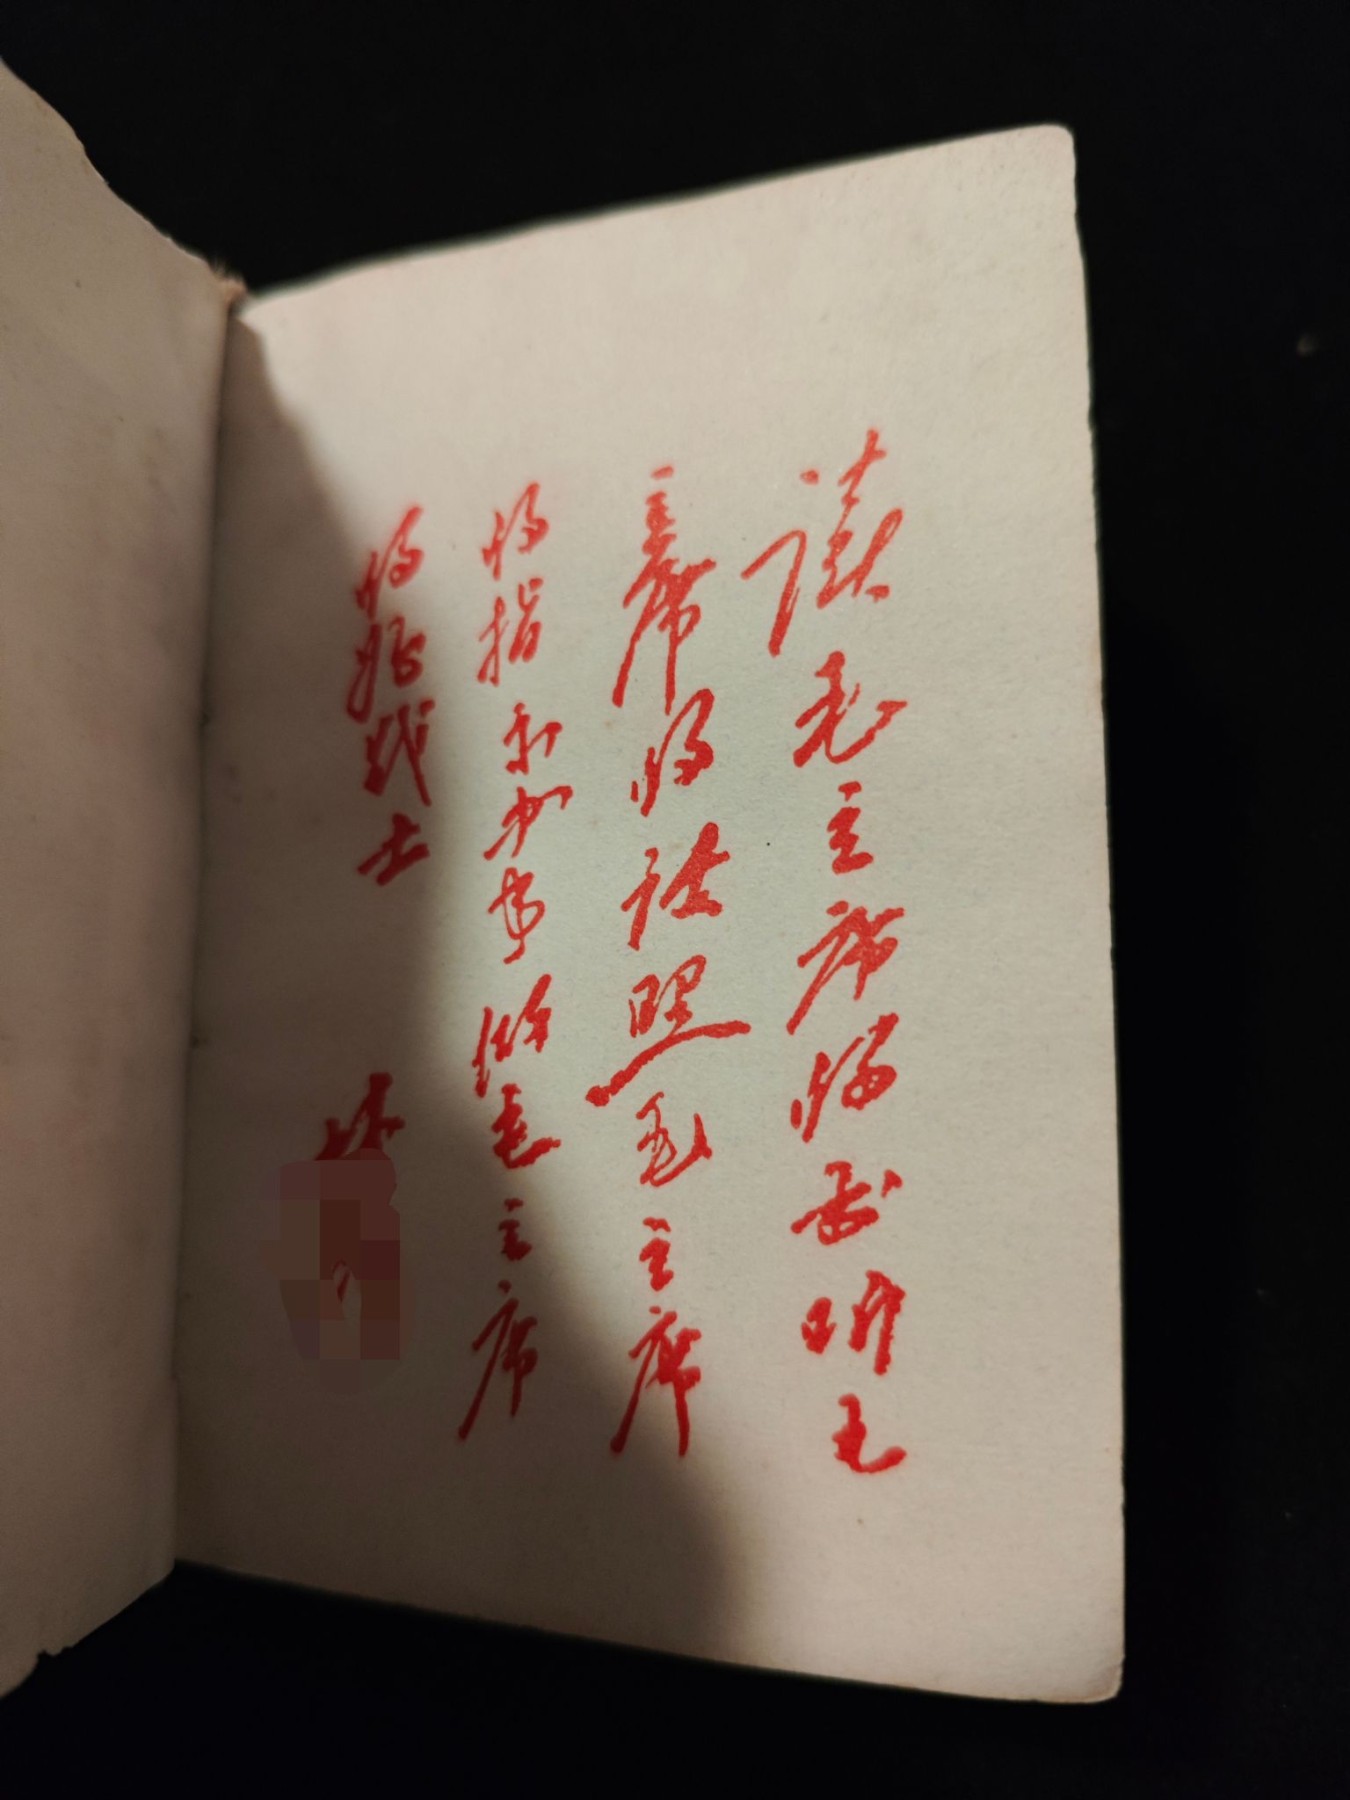 读毛主席的书听毛
主席的话照毛主席
的指示办事做毛主席
的好战士
林